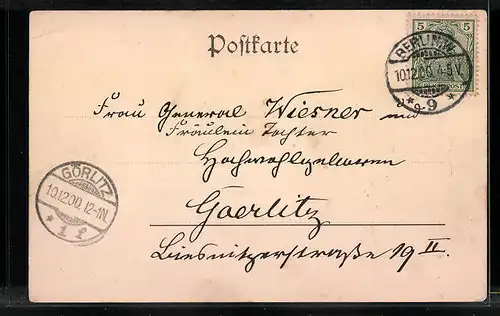 Postkarte
5 5
BERLIN W.
10.12.00. 4-5 V.
* 9 *
Frau General Wiesner und
Fräulein Tochter
Hochwohlgeboren
Goerlitz
Biesnitzerstraße 19 II.
GÖRLITZ
10.12.00. 12-1 N.
* 1 f